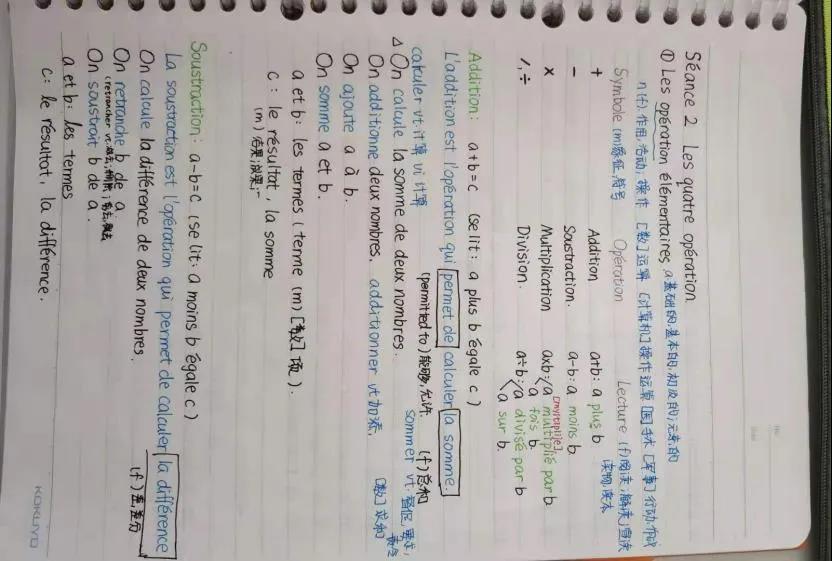 Séance 2 Les quatre opération
① Les opération élémentaires a 基础的,基本的,初及的;元素的
n(f). 作用,活动;操作 [数]运算 [计算机]操作运算 [医]手术 [军事]行动,作战
Symbole (m)象征,符号 Opération Lecture (f)阅读,解读;宣读
读物,读本
+ Addition a+b: a plus b
- Soustraction. a-b: a moins b
× Multiplication a×b: a multiplié par b
a fois b.
/,÷ Division. a÷b: a divisé par b
a sur b.
Addition: a+b=c (se lit: a plus b égale c)
L'addition est l'opération qui permet de calculer la somme
(permitted to)能够,允许. (f)总和
calculer vt 计算 vi 计算
△ On calcule la somme de deux nombres. sommer vt.
On additionne deux nombres. additionner vt 加添, [数]求和
On ajoute a à b.
On somme a et b.
a et b: les termes (terme (m) [数]项).
c: le résultat, la somme
(m)结果;成果;
Soustraction: a-b=c (se lit: a moins b égale c)
La soustraction est l'opération qui permet de calculer la différence
On calcule la différence de deux nombres. (f)差,差分
On retranche b de a
(retrancher vt.
On soustrait b de a.
a et b: les termes
c: le résultat, la différence.
KOKUYO